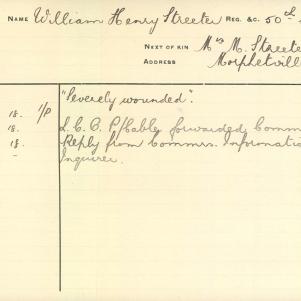 NAME William Henry Streeter REG. &C. 50th
NEXT OF KIN Mrs M. Streete
ADDRESS Morphetvill
"Severely wounded".
18. 1/P
18. S.C.B. P/Cable forwarded Comm
18. Reply from Commrs. Informatio
- Inquirer.